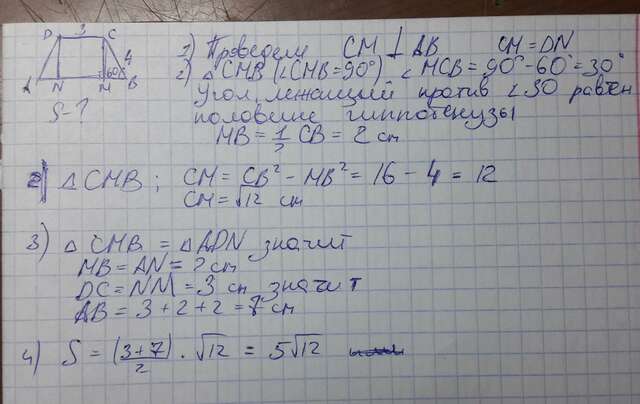 D 3 C
4
60°
A N M B
S-?
1) Проведем CM ⊥ AB CM = DN
2) △ CMB (∠CMB = 90°) ∠ MCB = 90° - 60° = 30°
Угол лежащий против ∠ 30 равен
половине гиппотенузы
MB = 1/2 CB = 2 cm
2) △ CMB ; CM = CB² - MB² = 16 - 4 = 12
CM = √12 cm
3) △ CMB = △ ADN значит
MB = AN = 2 cm
DC = NM = 3 cm значит
AB = 3 + 2 + 2 = 7 cm
4) S = (3+7)/2 · √12 = 5√12